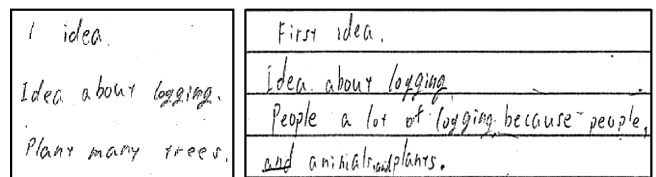 1 idea.
Idea about logging.
Plant many trees.
First idea.
Idea about logging
People a lot of logging because people,
and animals and plants.